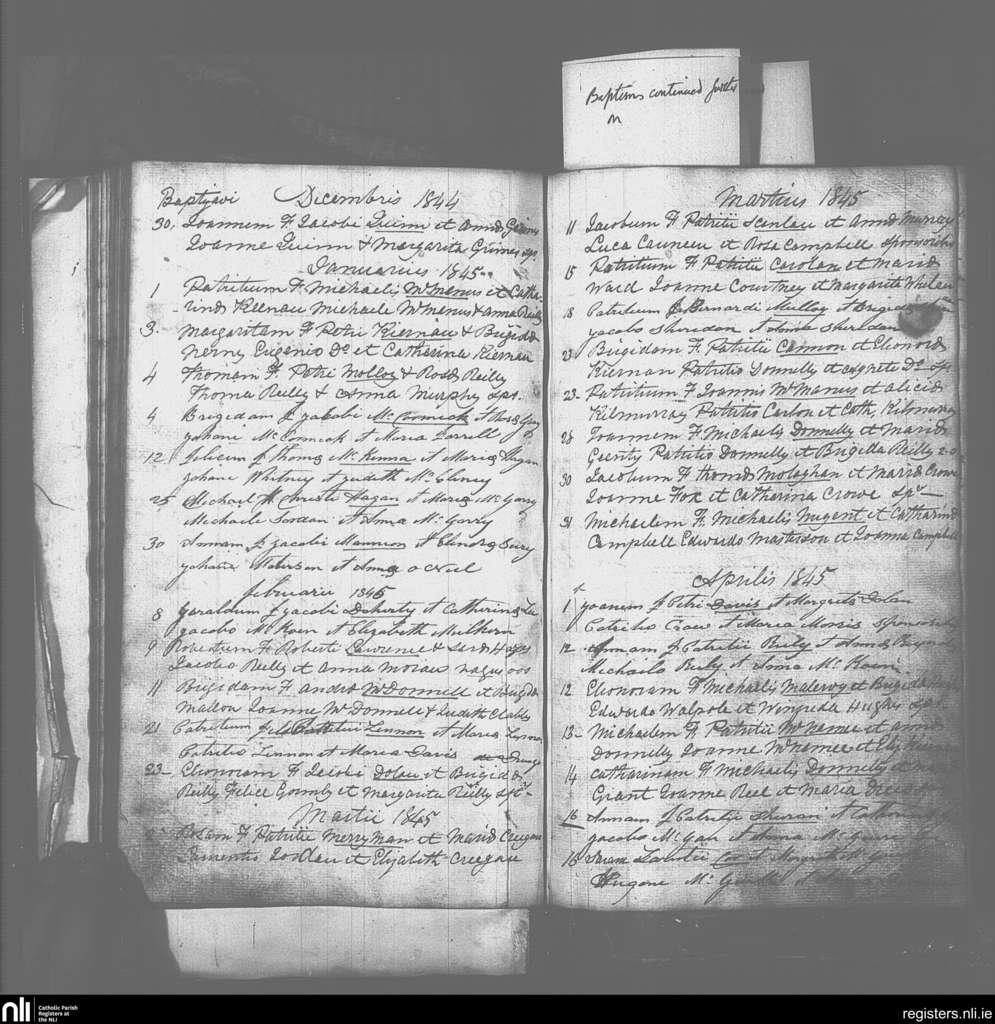 Baptisms continued further
on
Baptizavi Decembris 1844
30. Joannem F. Jacobi Quinn et Anna Grimes
Joanne Quinn & Margarita Grimes sps.
Januarius 1845
1 Patritium F. Michaelis McManus et Catha-
rina Keenan Michaele McManus & Anna Reilly
3. Margaritam F. Petri Kiernan & Brigida
Nerny Eugenio Do et Catharina Kiernan
4 Thomam F. Petri Molloy & Rosa Reilly
Thoma Reilly & Anna Murphy sps.
4 Brigidam f. Jacobi McCormick et
Johane McCormick et Maria Farrell
12 felicem f. Thomas McKenna et Maria Hagan
Johane Whitney et Judith
25 Michael Christi Hagan et Maria McGarry
Michaele Jordan et Anna McGarry
30 Annam f. Jacobi Mannion et
Johane Peterson et Anna O Neil
februarii 1845
8 Garaldum f. Jacobi Doherty et Catherina
Jacobo McKoen et Elizabeth Mulhern
9 Robertum F. Roberti Lawrence &
Jacobo Reilly et Anna Moran
11 Brigidam F. Andra McDonnell et Brigida
Mallon Joanne McDonnell & Judith
21 Patritium Patritii Lennon et Maria Lennon
Patritio Lennon et Maria Davis
23 Elionoram F. Jacobi Dolan et Brigida
Reilly Felice Gormly et Margarita Reilly sps.
Martii 1845
Rosam F. Patritii Merryman et Maria Creegan
Jordan et Elizabeth Creegan
Martius 1845
11 Jacobum F. Patritii Scanlan et Anna Murray
Luca et Rosa Campbell sponsoribus
15 Patritium F. Patritii Carolan et Maria
Ward Joanne Courtney et Margarita Whelan
18 Patritium f. Bernardi Mulloy et Brigida
Jacobo Sheridan et Anna Sheridan
23 Brigidam F. Patritii Cannon et Elionora
Kiernan Patritio Donnelly et Do sps
23 Patritium F. Joannis McManus et Alicia
Kilmurray Patritio Carlon et Cath. Kilmurray
28 Joannem F. Michaelis Donnelly et Maria
Geenty Patritio Donnelly et Brigida Reilly
30 Jacobum F. Thoma Molaghan et Maria Crowe
Joanne Fox et Catharina Crowe sps
31 Michaelem F. Michaelis Nugent et Catharina
Campbell Edwardo Masterson et Joanna Campbell
Aprilis 1845
1 Joanem f. Petri Davis et Margreta Dolan
Patritio Crow et Maria Morris sponsoribus
12 Annam f. Patritii Riely et Anna
Michaile Riely et Anna McKoen
12 Elionoram F. Michaelis et Brigida
Edwardo Walpole et Winifreda Hughes sps.
13 Michaelem F. Patritii McNamee et Anna
Donnelly Joanne McNamee et
14 Catharinam F. Michaelis Donnelly et
Grant Joanne Reel et Maria
16 Annam f. Patritii et Catherina
Jacobo McGan et Anna
16 Patritii Cox et
Hugone
nli Catholic Parish
Registers at
the NLI
registers.nli.ie